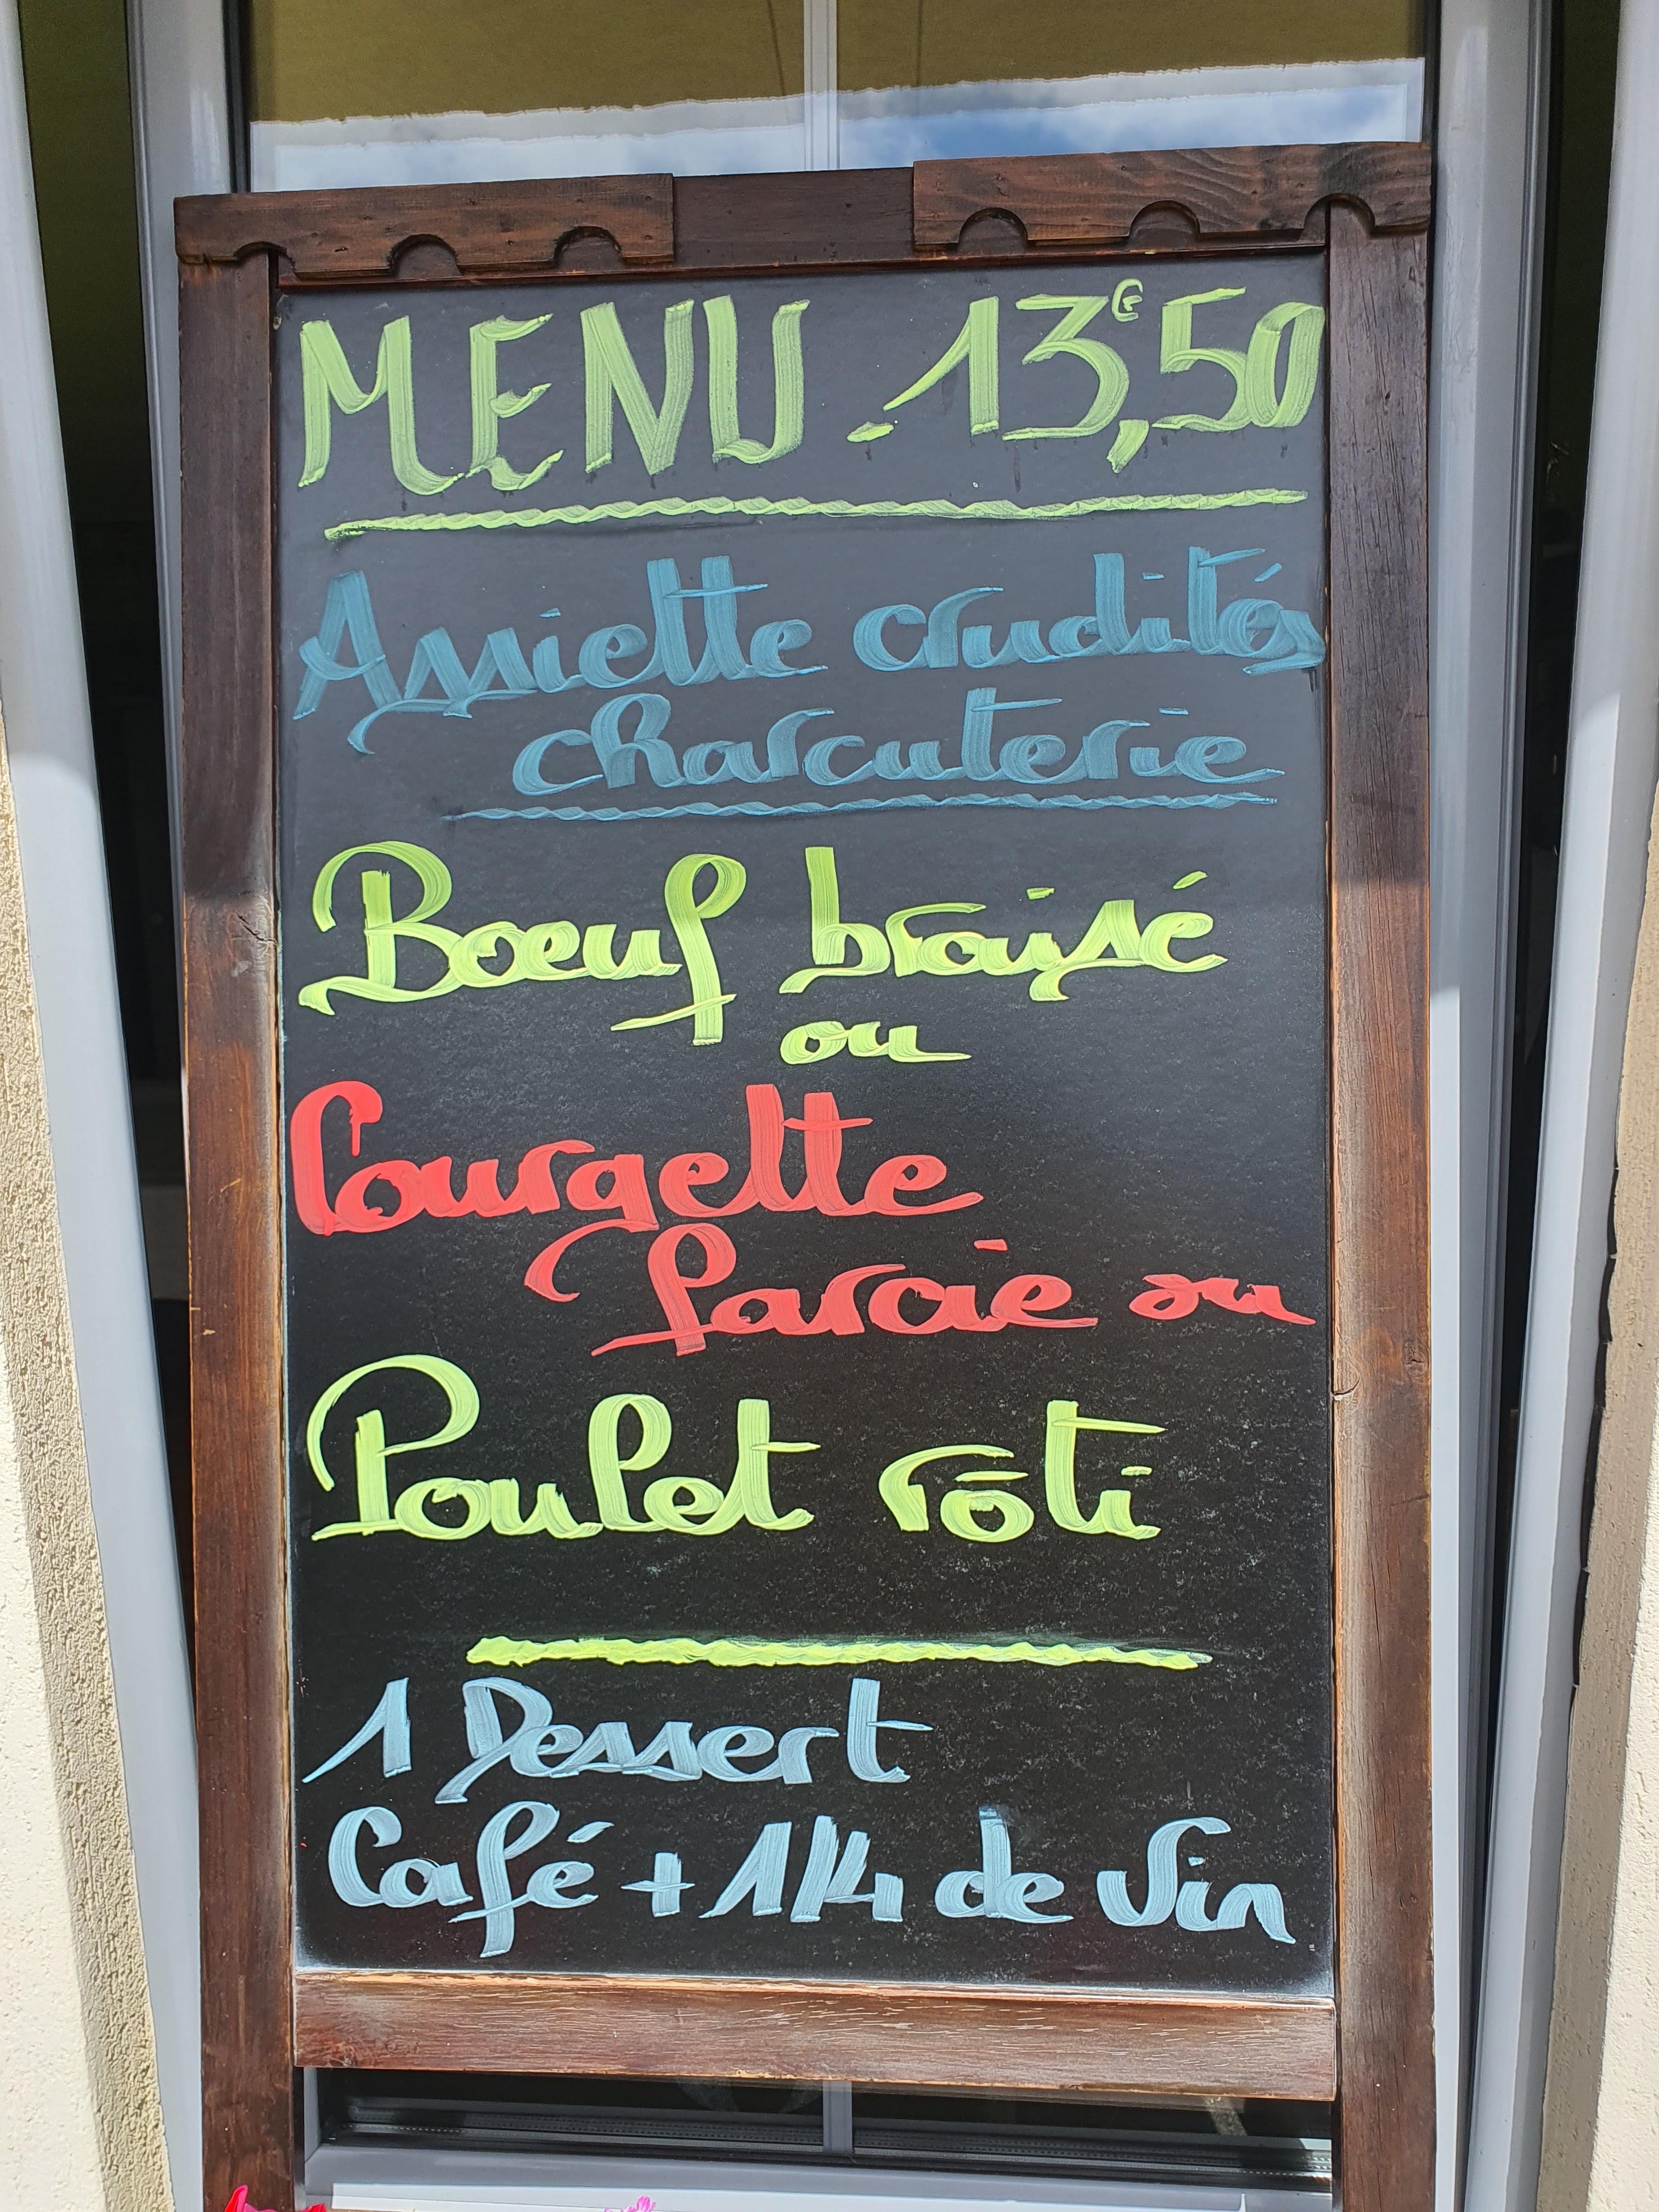 MENU - 13€,50
Assiette crudités
charcuterie
Boeuf braisé
ou
Courgette
farcie ou
Poulet rôti
1 Dessert
Café + 1/4 de Vin